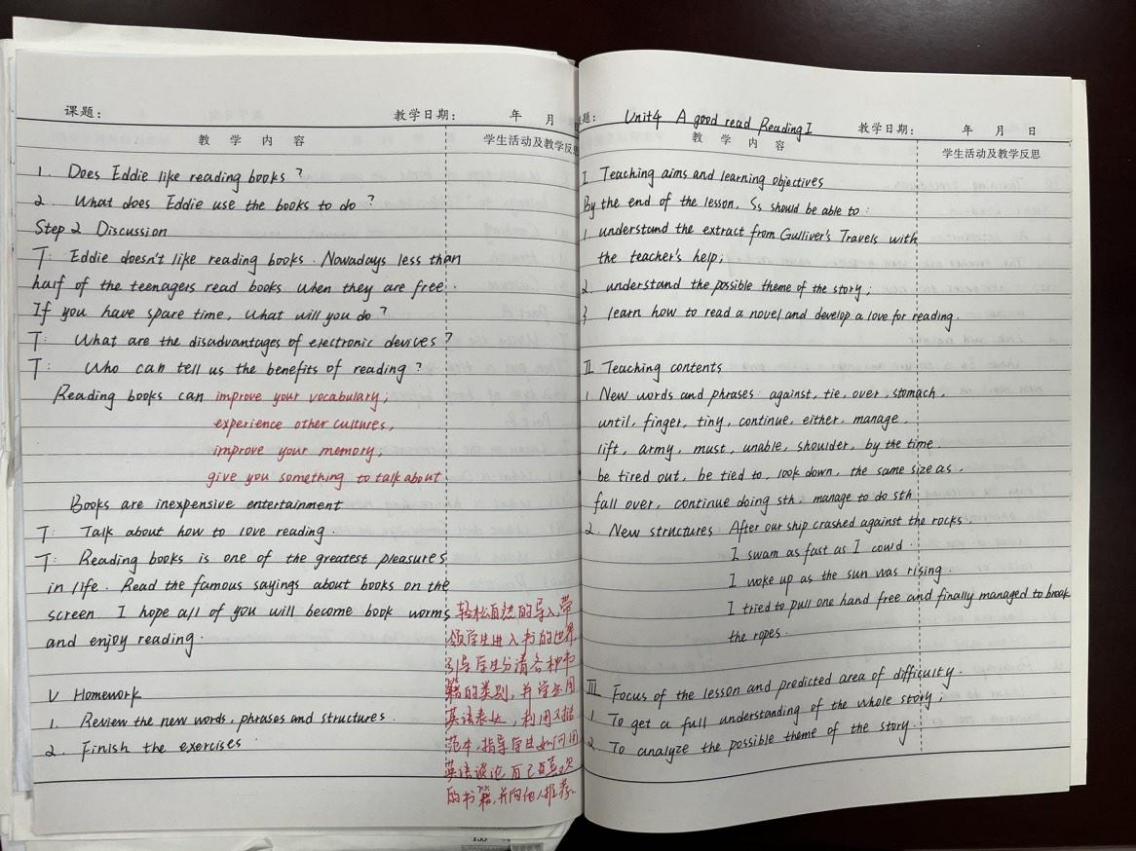 课题：
教学日期： 年 月
教 学 内 容
学生活动及教学反思
1. Does Eddie like reading books ?
2. What does Eddie use the books to do ?
Step 2 Discussion
T: Eddie doesn't like reading books. Nowadays less than
half of the teenagers read books when they are free.
If you have spare time, what will you do ?
T: What are the disadvantages of electronic devices ?
T: Who can tell us the benefits of reading ?
Reading books can improve your vocabulary;
experience other cultures,
improve your memory,
give you something to talk about
Books are inexpensive entertainment
T: Talk about how to love reading.
T: Reading books is one of the greatest pleasures
in life. Read the famous sayings about books on the
screen. I hope all of you will become book worms
and enjoy reading.
V Homework
1. Review the new words, phrases and structures.
2. Finish the exercises.
轻松自然的导入,带
领学生进入书的世界,
引导学生分清各种书
籍的类别,并学会用
英语表达,利用
范本,指导学生如何用
英语谈论自己喜欢
的书籍,并向他人推荐.
题： Unit4 A good read Reading I
教学日期： 年 月 日
教 学 内 容
学生活动及教学反思
I Teaching aims and learning objectives
By the end of the lesson, Ss should be able to:
1. understand the extract from Gulliver's Travels with
the teacher's help;
2. understand the possible theme of the story;
3 learn how to read a novel and develop a love for reading.
II Teaching contents
1 New words and phrases: against, tie, over, stomach,
until, finger, tiny, continue, either, manage,
lift, army, must, unable, shoulder, by the time
be tired out, be tied to, look down, the same size as,
fall over, continue doing sth, manage to do sth
2. New structures After our ship crashed against the rocks.
I swam as fast as I could.
I woke up as the sun was rising.
I tried to pull one hand free and finally managed to break
the ropes.
III Focus of the lesson and predicted area of difficulty.
1 To get a full understanding of the whole story;
2. To analyze the possible theme of the story.